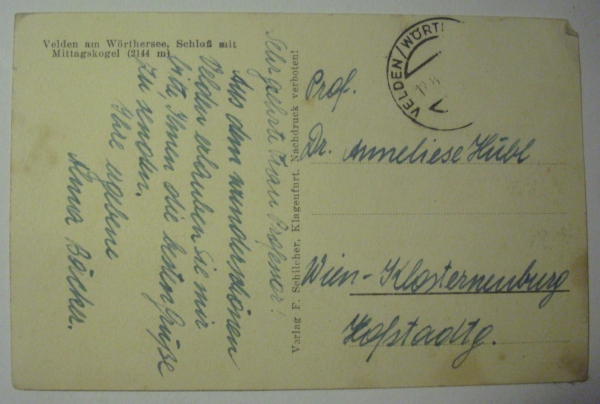 Velden am Wörthersee, Schloß mit
Mittagskogel (2144 m)
Sehr geehrte Frau Professor!
Aus dem wunderschönen
Velden erlauben Sie mir
bitte, Ihnen die besten Grüße
zu senden.
Ihre ergebene
Anna Bäcker.
Verlag F. Schilcher, Klagenfurt. Nachdruck verboten!
VELDEN/WÖRTH
Prof.
Dr. Anneliese Hübl
Wien-Klosterneuburg
Hofstadtg.